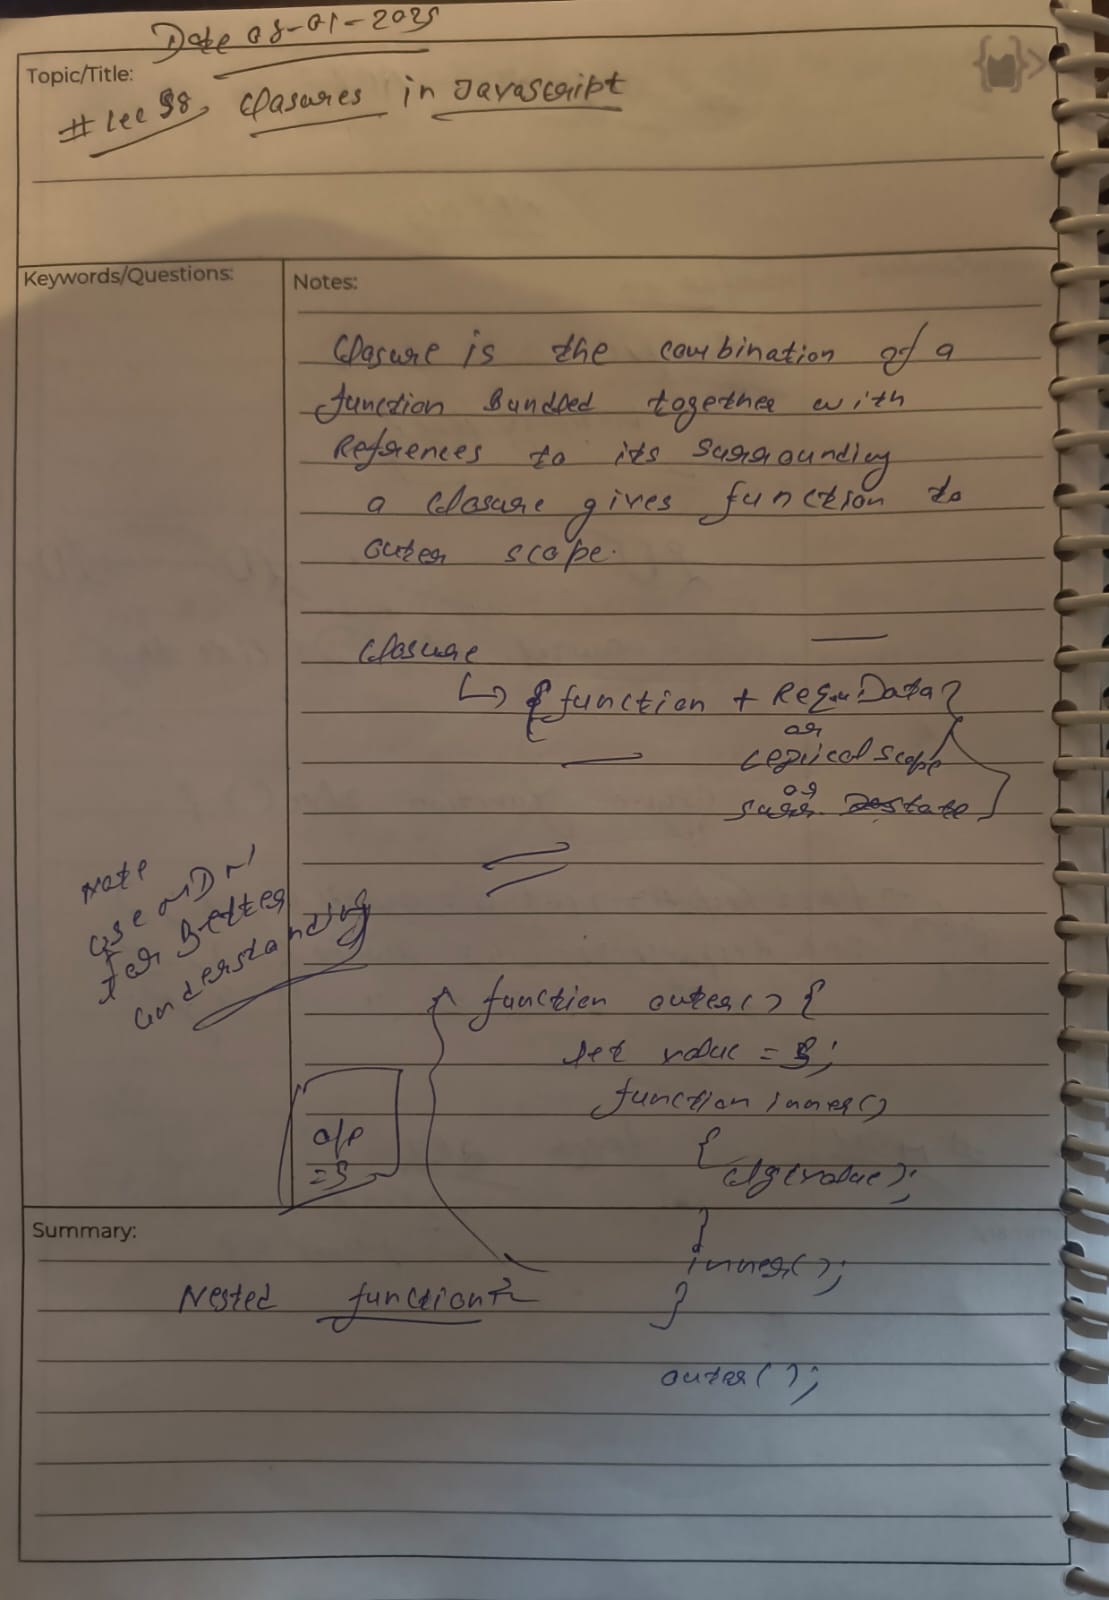 Date 08-01-2025
Topic/Title:
# Lec 98, Closures in Javascript
Keywords/Questions:
Notes:
Closure is the combination of a
function Bundled together with
References to its surrounding
a closure gives function to
outer scope.
Closure
↳ { function + Requ Data }
or
lexical scope
or
surr. state
Note
use MDN
for Better
understanding
function outer() {
let value = 5;
function inner()
{
clg(value);
}
inner();
}
outer();
o/p
= 5
Summary:
Nested function